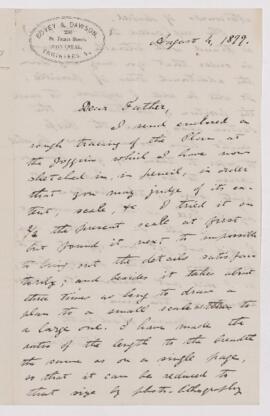 DOVEY & DAWSON
St. James Street
MONTREAL
ENGINEERS &c.
August 4, 1879.
Dear Father,
I send enclosed a
rough tracing of the Plan at
the Joggins which I have now
sketched in, in pencil, in order
that you may judge of its ex-
tent, scale, &c I tried it on
½ the present scale at first
but found it next to impossible
to bring out the details satisfac-
torily; and besides it takes about
three times as long to draw a
plan to a small scale as to
a large one. I have made the
ratio of the length to the breadth
the same as on a single page,
so that it can be reduced to
that size by photo-lithography